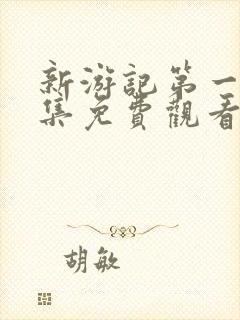 新游記第一
集免費觀看
胡敏